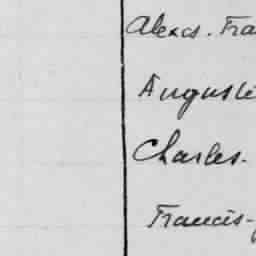 Alexcs. Fra
Auguste
Charles.
Francis-